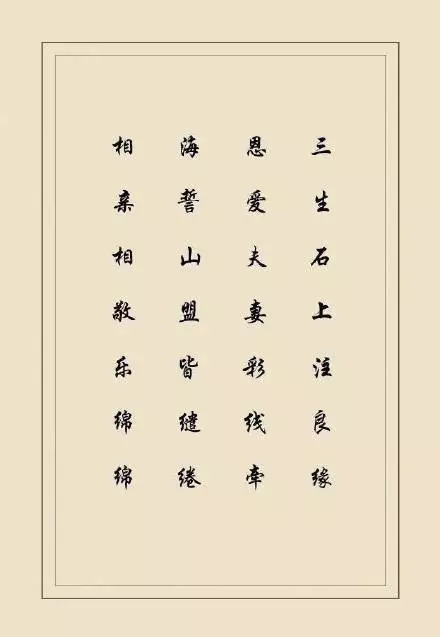 三生石上注良缘
恩爱夫妻彩线牵
海誓山盟皆缱绻
相亲相敬乐绵绵